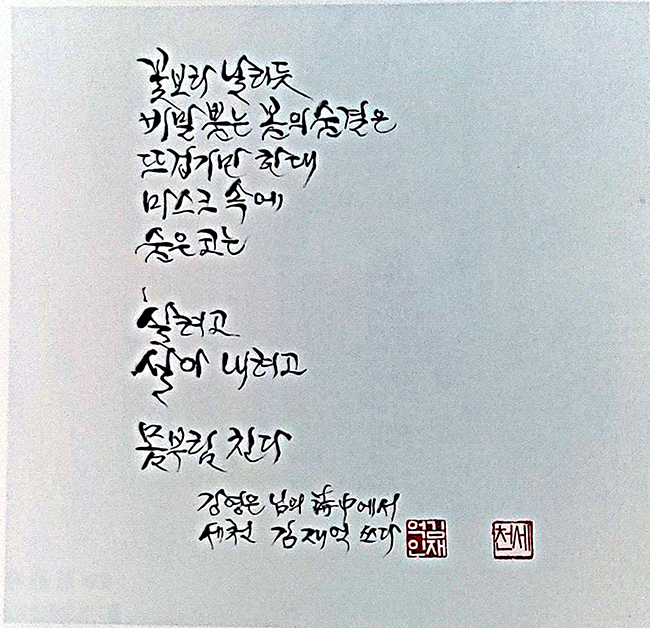 꽃보라 날리듯
비말 뿜는 봄의 숨결은
뜨겁기만 한대
마스크 속에
숨은 코는
살려고
살아 내려고
몸부림 친다
강영은 님의 詩中에서
세천 김재억 쓰다
김재억인
세천